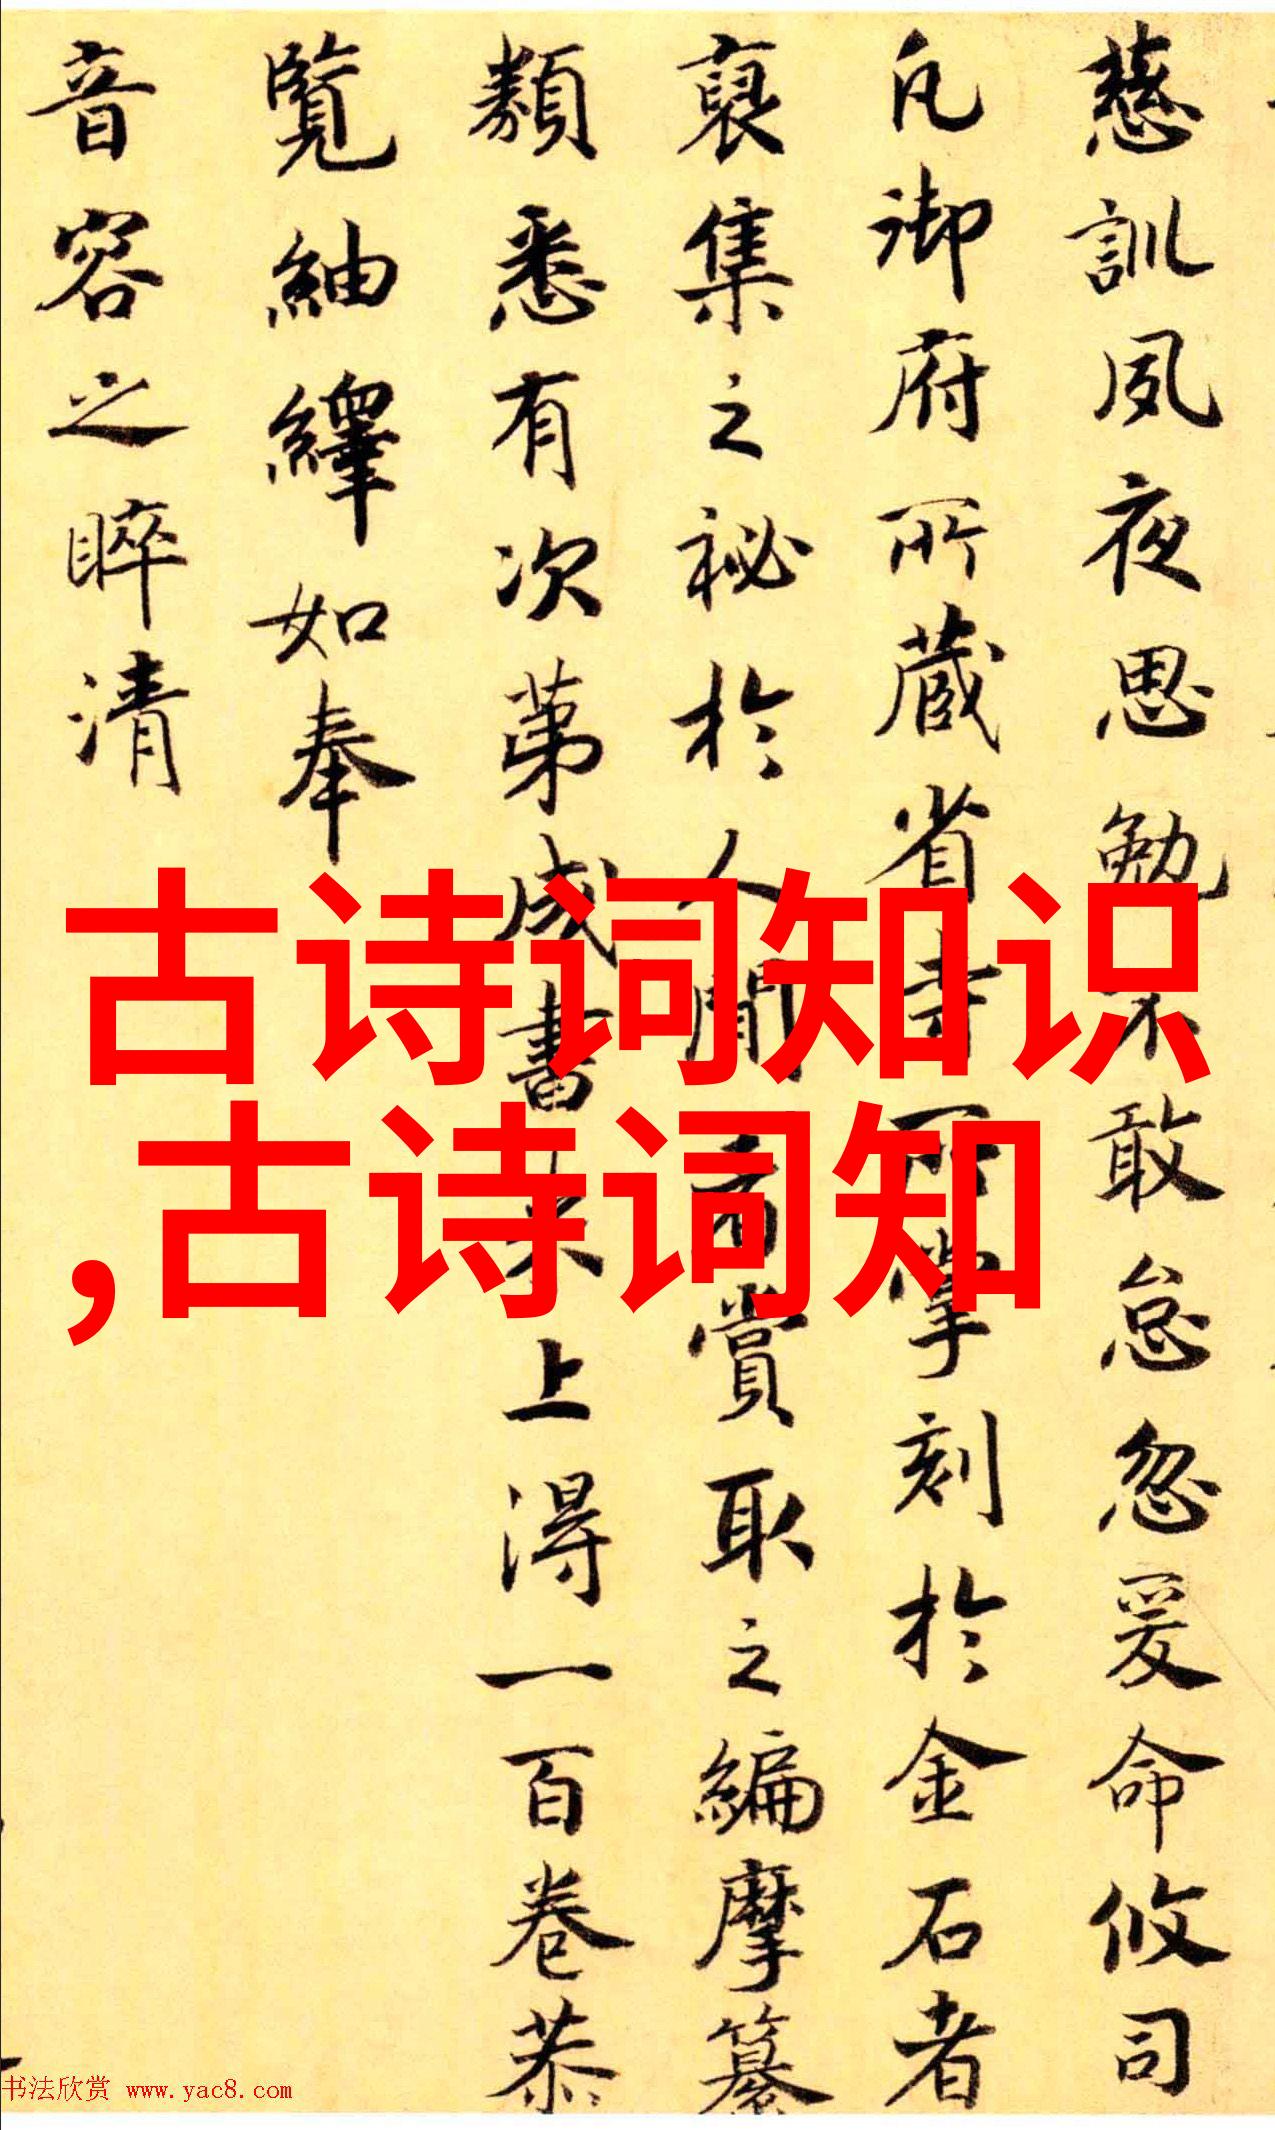 慈訓夙夜思勉不敢怠忽爰命攸司
凡御府所藏省寺所掌刻於金石者
裒集之祕於人間者賞取之編摩纂
類悉有次第成書來上得一百卷恭
覽紬繹如奉
音容之睟清
古诗词知识
,古诗词知
书法欣赏 www.yac8.com